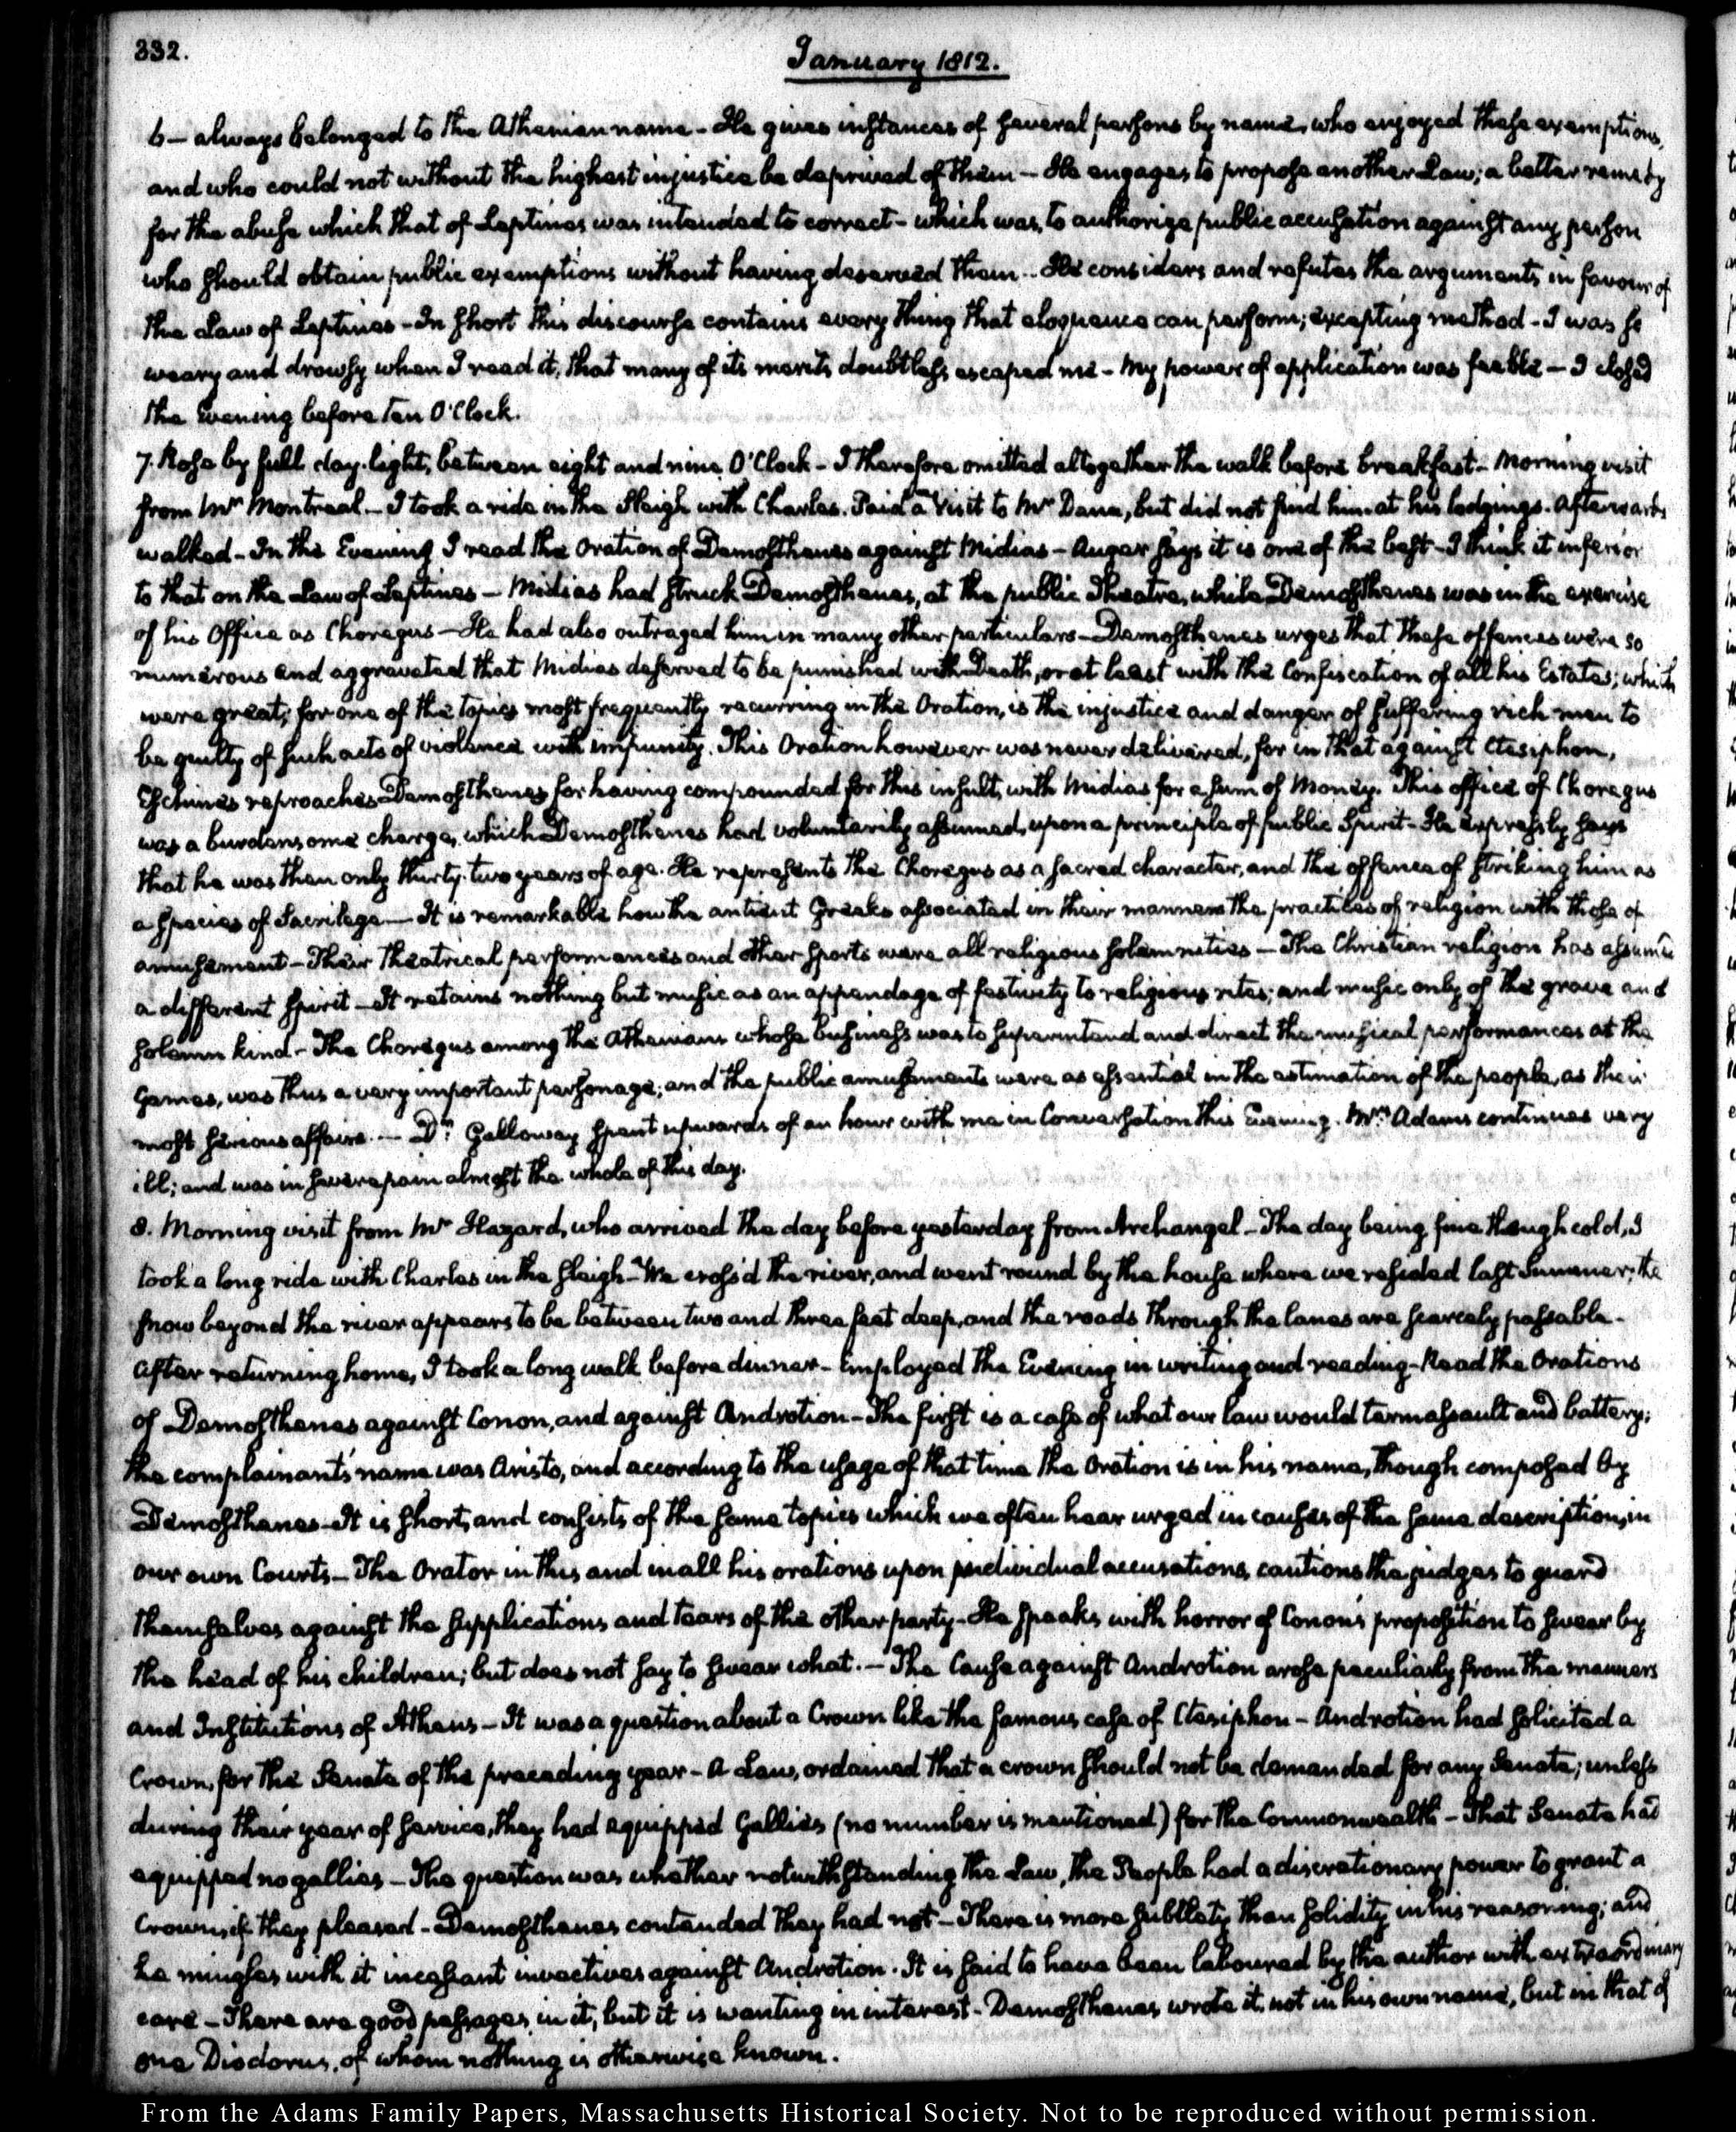 332.
January 1812.
6 — always belonged to the Athenian name - He gives instances of several persons by name, who enjoyed these exemptions,
and who could not without the highest injustice be deprived of them — He engages to propose another Law; a better remedy
for the abuse which that of Leptines was intended to correct - which was, to authorize public accusation against any person
who should obtain public exemptions without having deserved them.. He considers and refutes the arguments in favour of
the Law of Leptines - In short this discourse contains every thing that eloquence can perform; excepting method - I was so
weary and drowsy when I read it, that many of its merits doubtless escaped me - My power of application was feeble — I closed
the Evening before ten O'Clock.
7. Rose by full day-light, between eight and nine O'Clock - I therefore omitted altogether the walk before breakfast - Morning visit
from Mr Montreal — I took a ride in the Sleigh with Charles. Paid a Visit to Mr Dana, but did not find him at his lodgings. Afterwards
walked - In the Evening I read the Oration of Demosthenes against Midias - Auger says it is one of the best - I think it inferior
to that on the Law of Leptines — Midias had struck Demosthenes, at the public Theatre, while Demosthenes was in the exercise
of his Office as Choregus — He had also outraged him in many other particulars - Demosthenes urges that these offences were so
numerous and aggravated that Midias deserved to be punished with Death, or at least with the Confiscation of all his Estates; which
were great; for one of the topics most frequently recurring in the Oration, is the injustice and danger of suffering rich men to
be guilty of such acts of violence with impunity. This Oration however was never delivered, for in that against Ctesiphon,
Eschines reproaches Demosthenes for having compounded for this insult, with Midias for a sum of Money. This office of Choregus
was a burdensome charge, which Demosthenes had voluntarily assumed, upon a principle of public Spirit - He expressly says
that he was then only thirty-two years of age. He represents the Choregus as a sacred character, and the offence of striking him as
a species of Sacrilege — It is remarkable how the antient Greeks associated in their manners the practices of religion with those of
amusement - Their Theatrical performances and other sports were all religious solemnities — The Christian religion has assumed
a different spirit — It retains nothing but music as an appendage of festivity to religious rites; and music only of the grave and
solemn kind - The Choregus among the Athenians whose business was to superintend and direct the musical performances at the
Games, was thus a very important personage; and the public amusements were as essential in the estimation of the people, as their
most serious affairs. — Dr Galloway spent upwards of an hour with me in Conversation this Evening. Mrs Adams continues very
ill; and was in severe pain almost the whole of this day.
8. Morning visit from Mr Hazard, who arrived the day before yesterday from Archangel - The day being fine though cold, I
took a long ride with Charles in the sleigh - We cross'd the river, and went round by the house where we resided last Summer; the
snow beyond the river appears to be between two and three feet deep, and the roads through the lanes are scarcely passable -
After returning home, I took a long walk before dinner - Employed the Evening in writing and reading - Read the Orations
of Demosthenes against Conon, and against Androtion - The first is a case of what our law would term assault and battery;
the complainant's name was Aristo, and according to the usage of that time the Oration is in his name, though composed by
Demosthenes - It is short, and consists of the same topics which we often hear urged in causes of the same description, in
our own Courts — The Orator in this and in all his orations upon individual accusations, cautions the judges to guard
themselves against the supplications and tears of the other party - He speaks with horror of Conon's proposition to swear by
the head of his children; but does not say to swear what. — The Cause against Androtion arose peculiarly from the manners
and Institutions of Athens — It was a question about a Crown like the famous case of Ctesiphon - Androtion had solicited a
Crown, for the Senate of the preceding year - A Law, ordained that a crown should not be demanded for any Senate; unless
during their year of service, they had equipped Gallies (no number is mentioned) for the Commonwealth - That Senate had
equipped no gallies — The question was whether notwithstanding the Law, the People had a discretionary power to grant a
Crown, if they pleased - Demosthenes contended they had not - There is more subtlety than solidity in his reasoning; and
he mingles with it incessant invectives against Androtion. It is said to have been laboured by the author with extraordinary
care — There are good passages in it, but it is wanting in interest - Demosthenes wrote it, not in his own name, but in that of
one Diodorus, of whom nothing is otherwise known.
From the Adams Family Papers, Massachusetts Historical Society. Not to be reproduced without permission.